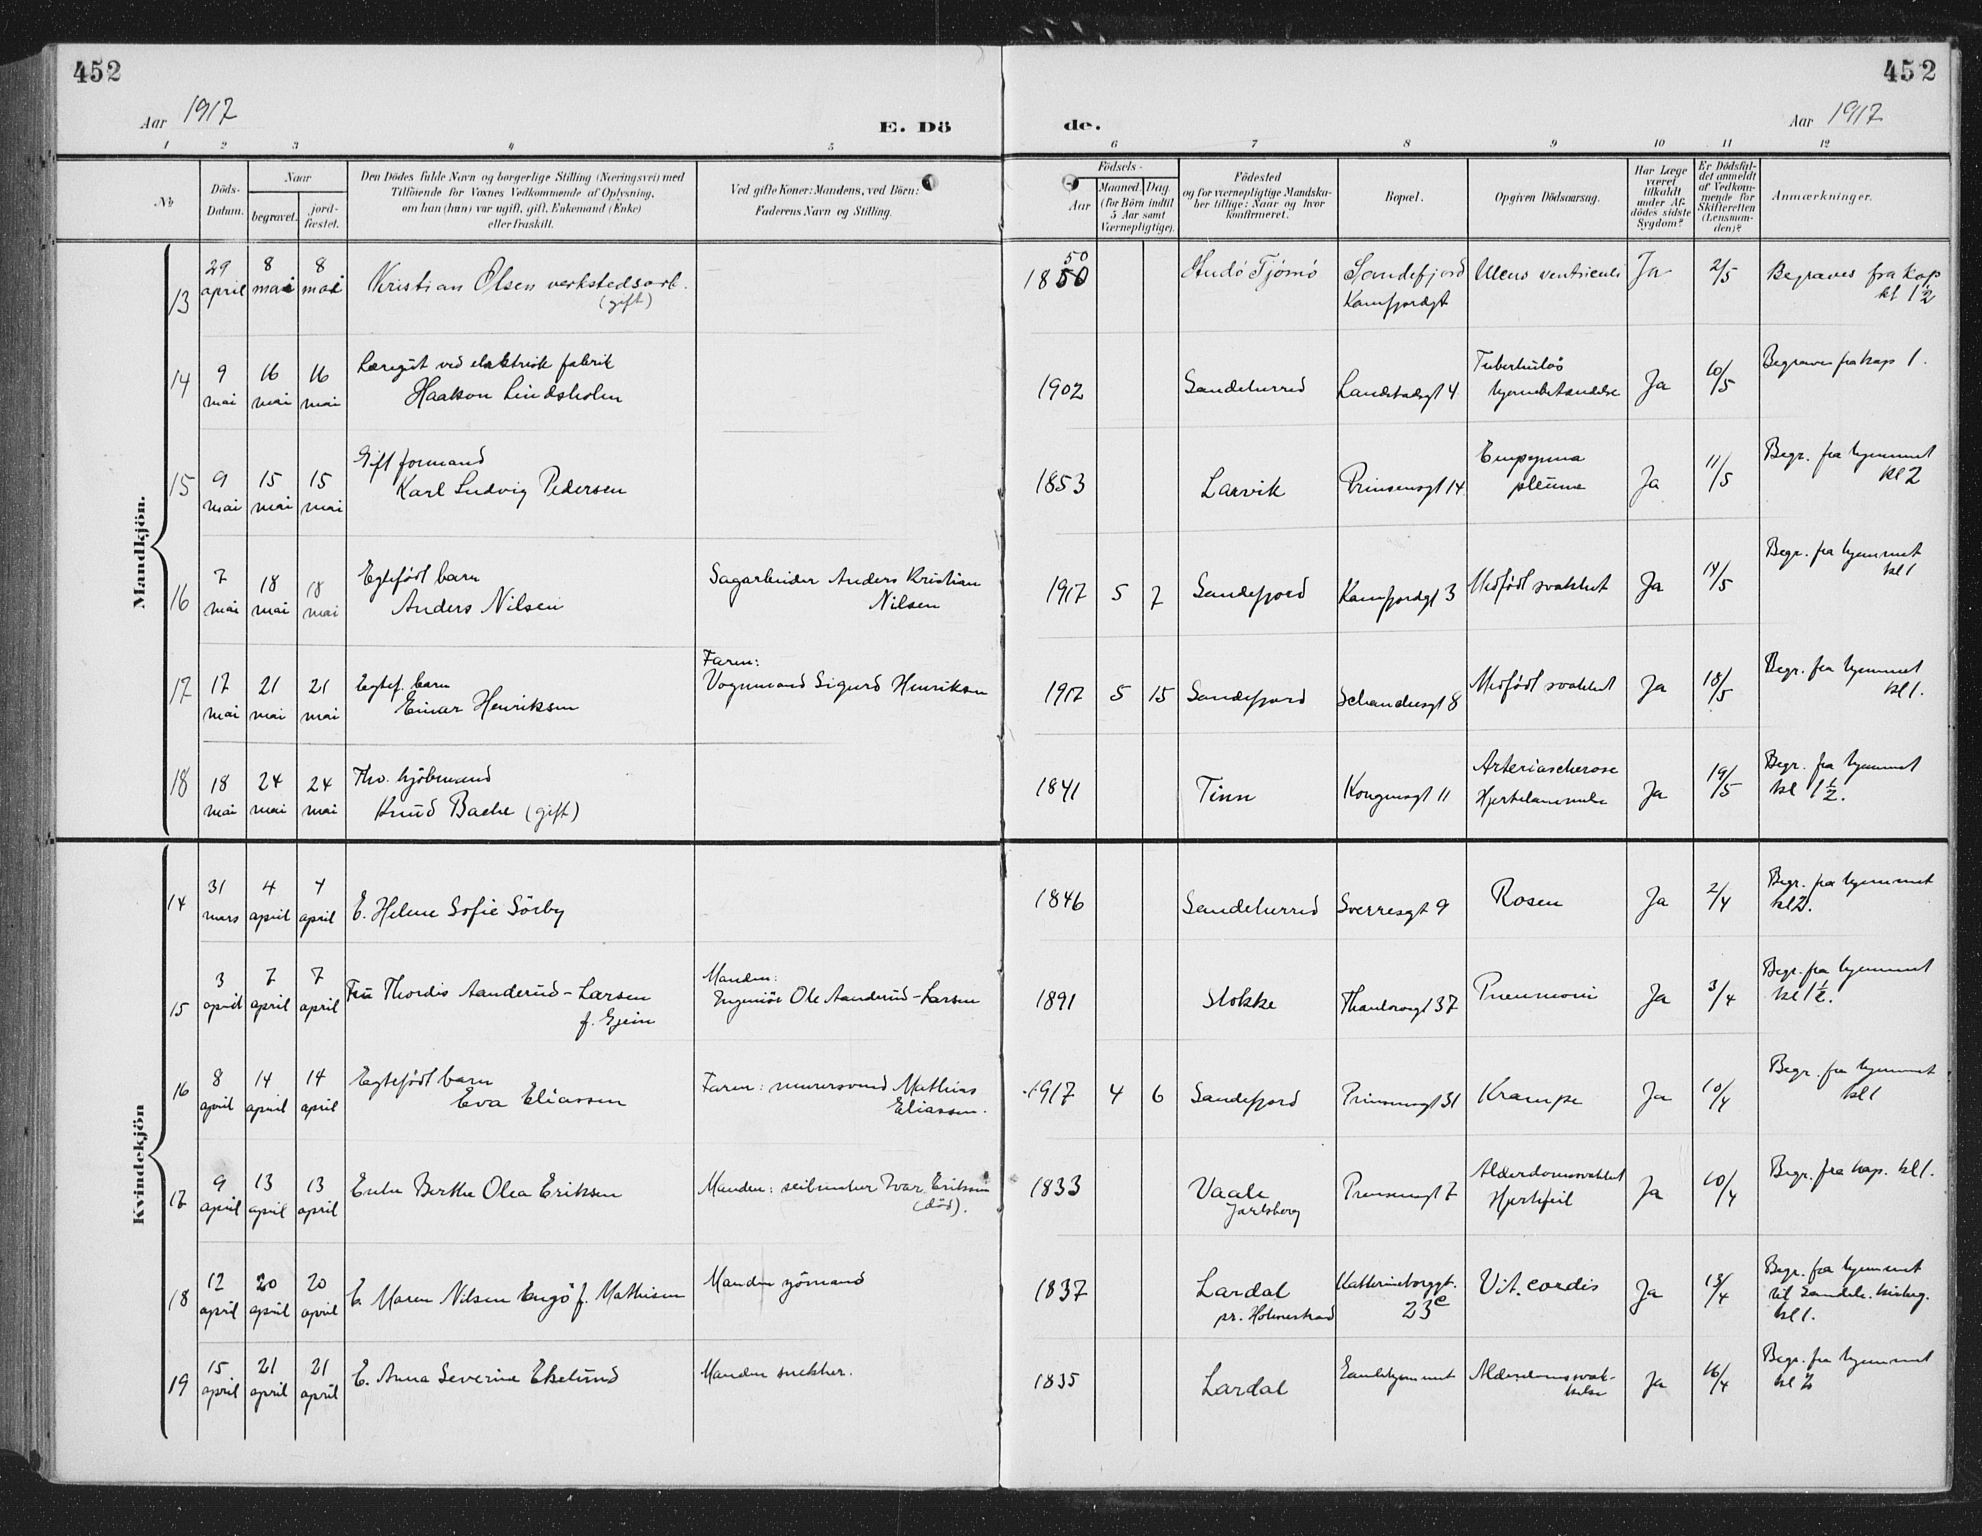 452
452
Aar 1917
E. Dö
de.
Aar 1917
1 2 3 4 5 6 7 8 9 10 11 12
No
Döds-
Datum.
Naar
begravet.
jord-
fæstet.
Den Dödes fulde Navn og borgerlige Stilling (Næringsvei) med
Tilföiende for Voxnes Vedkommende af Oplysning,
om han (hun) var ugift, gift, Enkemand (Enke)
eller fraskilt.
Ved gifte Koner: Mandens, ved Börn:
Faderens Navn og Stilling.
Födsels-
Aar
Maaned. Dag.
(for Börn indtil
5 Aar samt
Værnepligtige).
Födested
og for værnepligtige Mandska-
ber tillige: Naar og hvor
konfirmeret.
Bopæl.
Opgiven Dödsaarsag.
Har Læge
været
tilkaldt
under Af-
dödes sidste
Sygdom?
Er Dödsfal-
det anmeldt
af Vedkom-
mende for
Skifteretten
(Lensman-
den)?
Anmærkninger.
Mandkjön.
13 29 april 8 mai 8 mai Kristian Olsen verkstedsarb. (gift) 1850 50 Tjömö Sandefjord Kamfjordgt Ulcus ventriculi Ja 2/5 Begraves fra kap kl 1½
14 9 mai 16 mai 16 mai Læregut ved elektrisk fabrik
Haakon Lindsholm 1902 Sandeherred Landstadsgt 4 Tuberkuløs hjernebetændelse Ja 10/5 Begraves fra kap 1.
15 9 mai 15 mai 15 mai Gift formand
Karl Ludvig Pedersen 1853 Larvik Prinsensgt 14 pleurae Ja 11/5 Begr. fra hjemmet kl 2
16 7 mai 18 mai 18 mai Egtefødt barn
Anders Nilsen Sagarbeider Anders Kristian
Nilsen 1917 5 7 Sandefjord Kamfjordgt 3 Medfødt svakhet Ja 14/5 Begr. fra hjemmet kl 1
17 17 mai 21 mai 21 mai Egtef. barn
Einar Henriksen Faren:
Vognmand Sigurd Henriksen 1917 5 15 Sandefjord 8 Medfødt svakhet Ja 18/5 Begr. fra hjemmet kl 1.
18 18 mai 24 mai 24 mai Fhv. kjöbmand
Knud Bache (gift) 1841 Tinn Kongensgt 11 Arteriascherose Hjertelammelse Ja 19/5 Begr. fra hjemmet kl 1½.
Kvindekjön
14 31 mars 4 april 4 april E. Helene Sofie Sörby 1846 Sandeherred Sverresgt 9 Rosen Ja 2/4 Begr. fra hjemmet kl 2.
15 3 april 7 april 7 april Fru Thordis Aanderud-Larsen
f. Gjein Manden:
Ingeniör Ole Aanderud-Larsen 1891 Stokke Thaulowsgt 37 Pneumoni Ja 3/4 Begr. fra hjemmet kl 1½.
16 8 april 14 april 14 april Egtefödt barn
Eva Eliassen Faren: murersvend Mathias
Eliassen. 1917 4 6 Sandefjord Prinsensgt 31 Krampe Ja 10/4 Begr. fra hjemmet kl 1
17 9 april 13 april 13 april Enke Berthe Olea Eriksen Manden: seilmaker Ivar Eriksen
(död). 1833 Vaale Jarlsberg Prinsensgt 7 Alderdomssvakhet Hjertefeil Ja 10/4 Begr. fra kap. kl 1.
18 12 april 20 april 20 april E. Maren Nilsen Engö f. Mathisen Manden sjömand 1837 Lardal pr. Holmestrand Kathrineborggt. 23e Vit. cordis Ja 13/4 Begr. fra hjemmet til Sandeh. kirkeg. kl 1.
19 15 april 21 april 21 april E. Anna Severine Ekelund Manden snekker. 1835 Lardal Gamlehjemmet Alderdomssvak-
kelse Ja 16/4 Begr. fra hjemmet kl 2